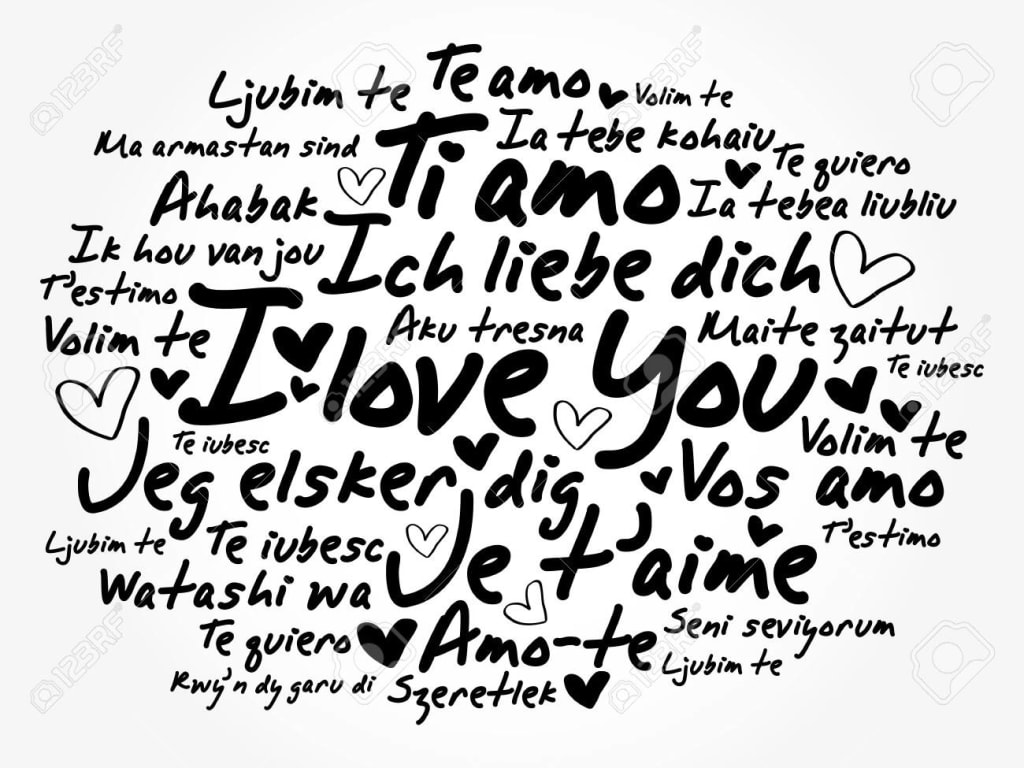 Te amo
Ljubim te
Volim te
Ia tebe kohaiu
Ma armastan sind
Ti amo
Te quiero
Ahabak
Ia tebea liubliu
Ik hou van jou
Ich liebe dich
T'estimo
I love You
Volim te
Aku tresna
Maite zaitut
Te iubesc
Te iubesc
Volim te
Jeg elsker dig
Vos amo
Ljubim te
Te iubesc
Je t'aime
T'estimo
Watashi wa
Te quiero
Amo-te
Seni seviyorum
Ljubim te
Rwy'n dy garu di
Szeretlek
123RF
123RF
123RF
123RF
123RF
123RF
123RF
123RF
123RF